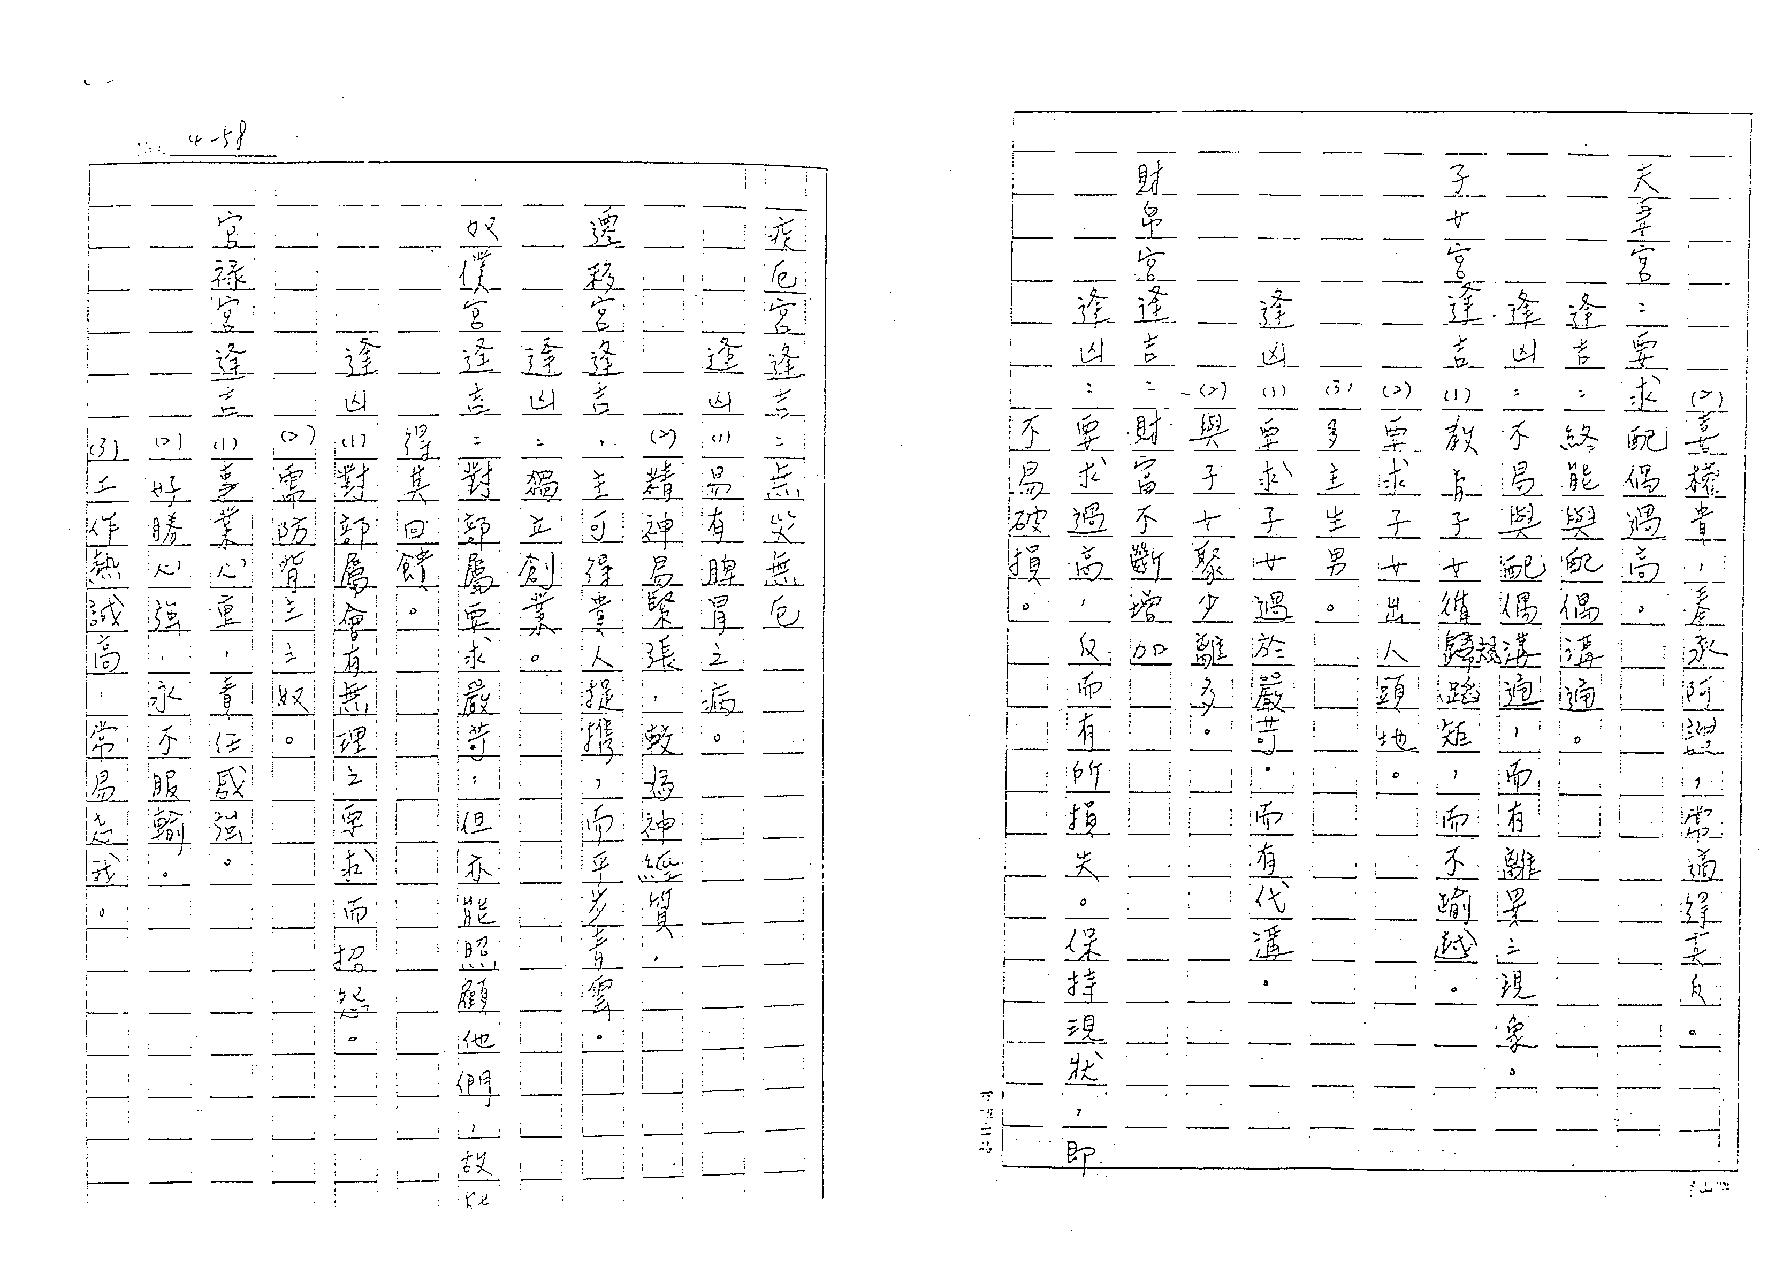 (2)喜權貴，奉承阿諛，常適得其反。
夫妻宮：要求配偶過高。
逢吉：終能與配偶溝通。
逢凶：不易與配偶溝通，而有離異之現象。
子女宮逢吉(1)教育子女循規蹈矩，而不踰越。
(2)要求子女出人頭地。
(3)多主生男。
逢凶(1)要求子女過於嚴苛，而有代溝。
(2)與子女聚少離多。
財帛宮逢吉：財富不斷增加
逢凶：要求過高，反而有所損失。保持現狀，即
不易破損。
4-58
疾厄宮逢吉：無災無厄
逢凶(1)易有脾胃之病。
(2)精神易緊張，較為神經質。
遷移宮逢吉，主可得貴人提攜，而平步青雲。
逢凶：獨立創業。
奴僕宮逢吉：對部屬要求嚴苛，但亦能照顧他們，故能
得其回饋。
逢凶(1)對部屬會有無理之要求而招怨。
(2)需防背主之奴。
官祿宮逢吉(1)事業心重，責任感強。
(2)好勝心強，永不服輸。
(3)工作熱誠高，常易忘我。